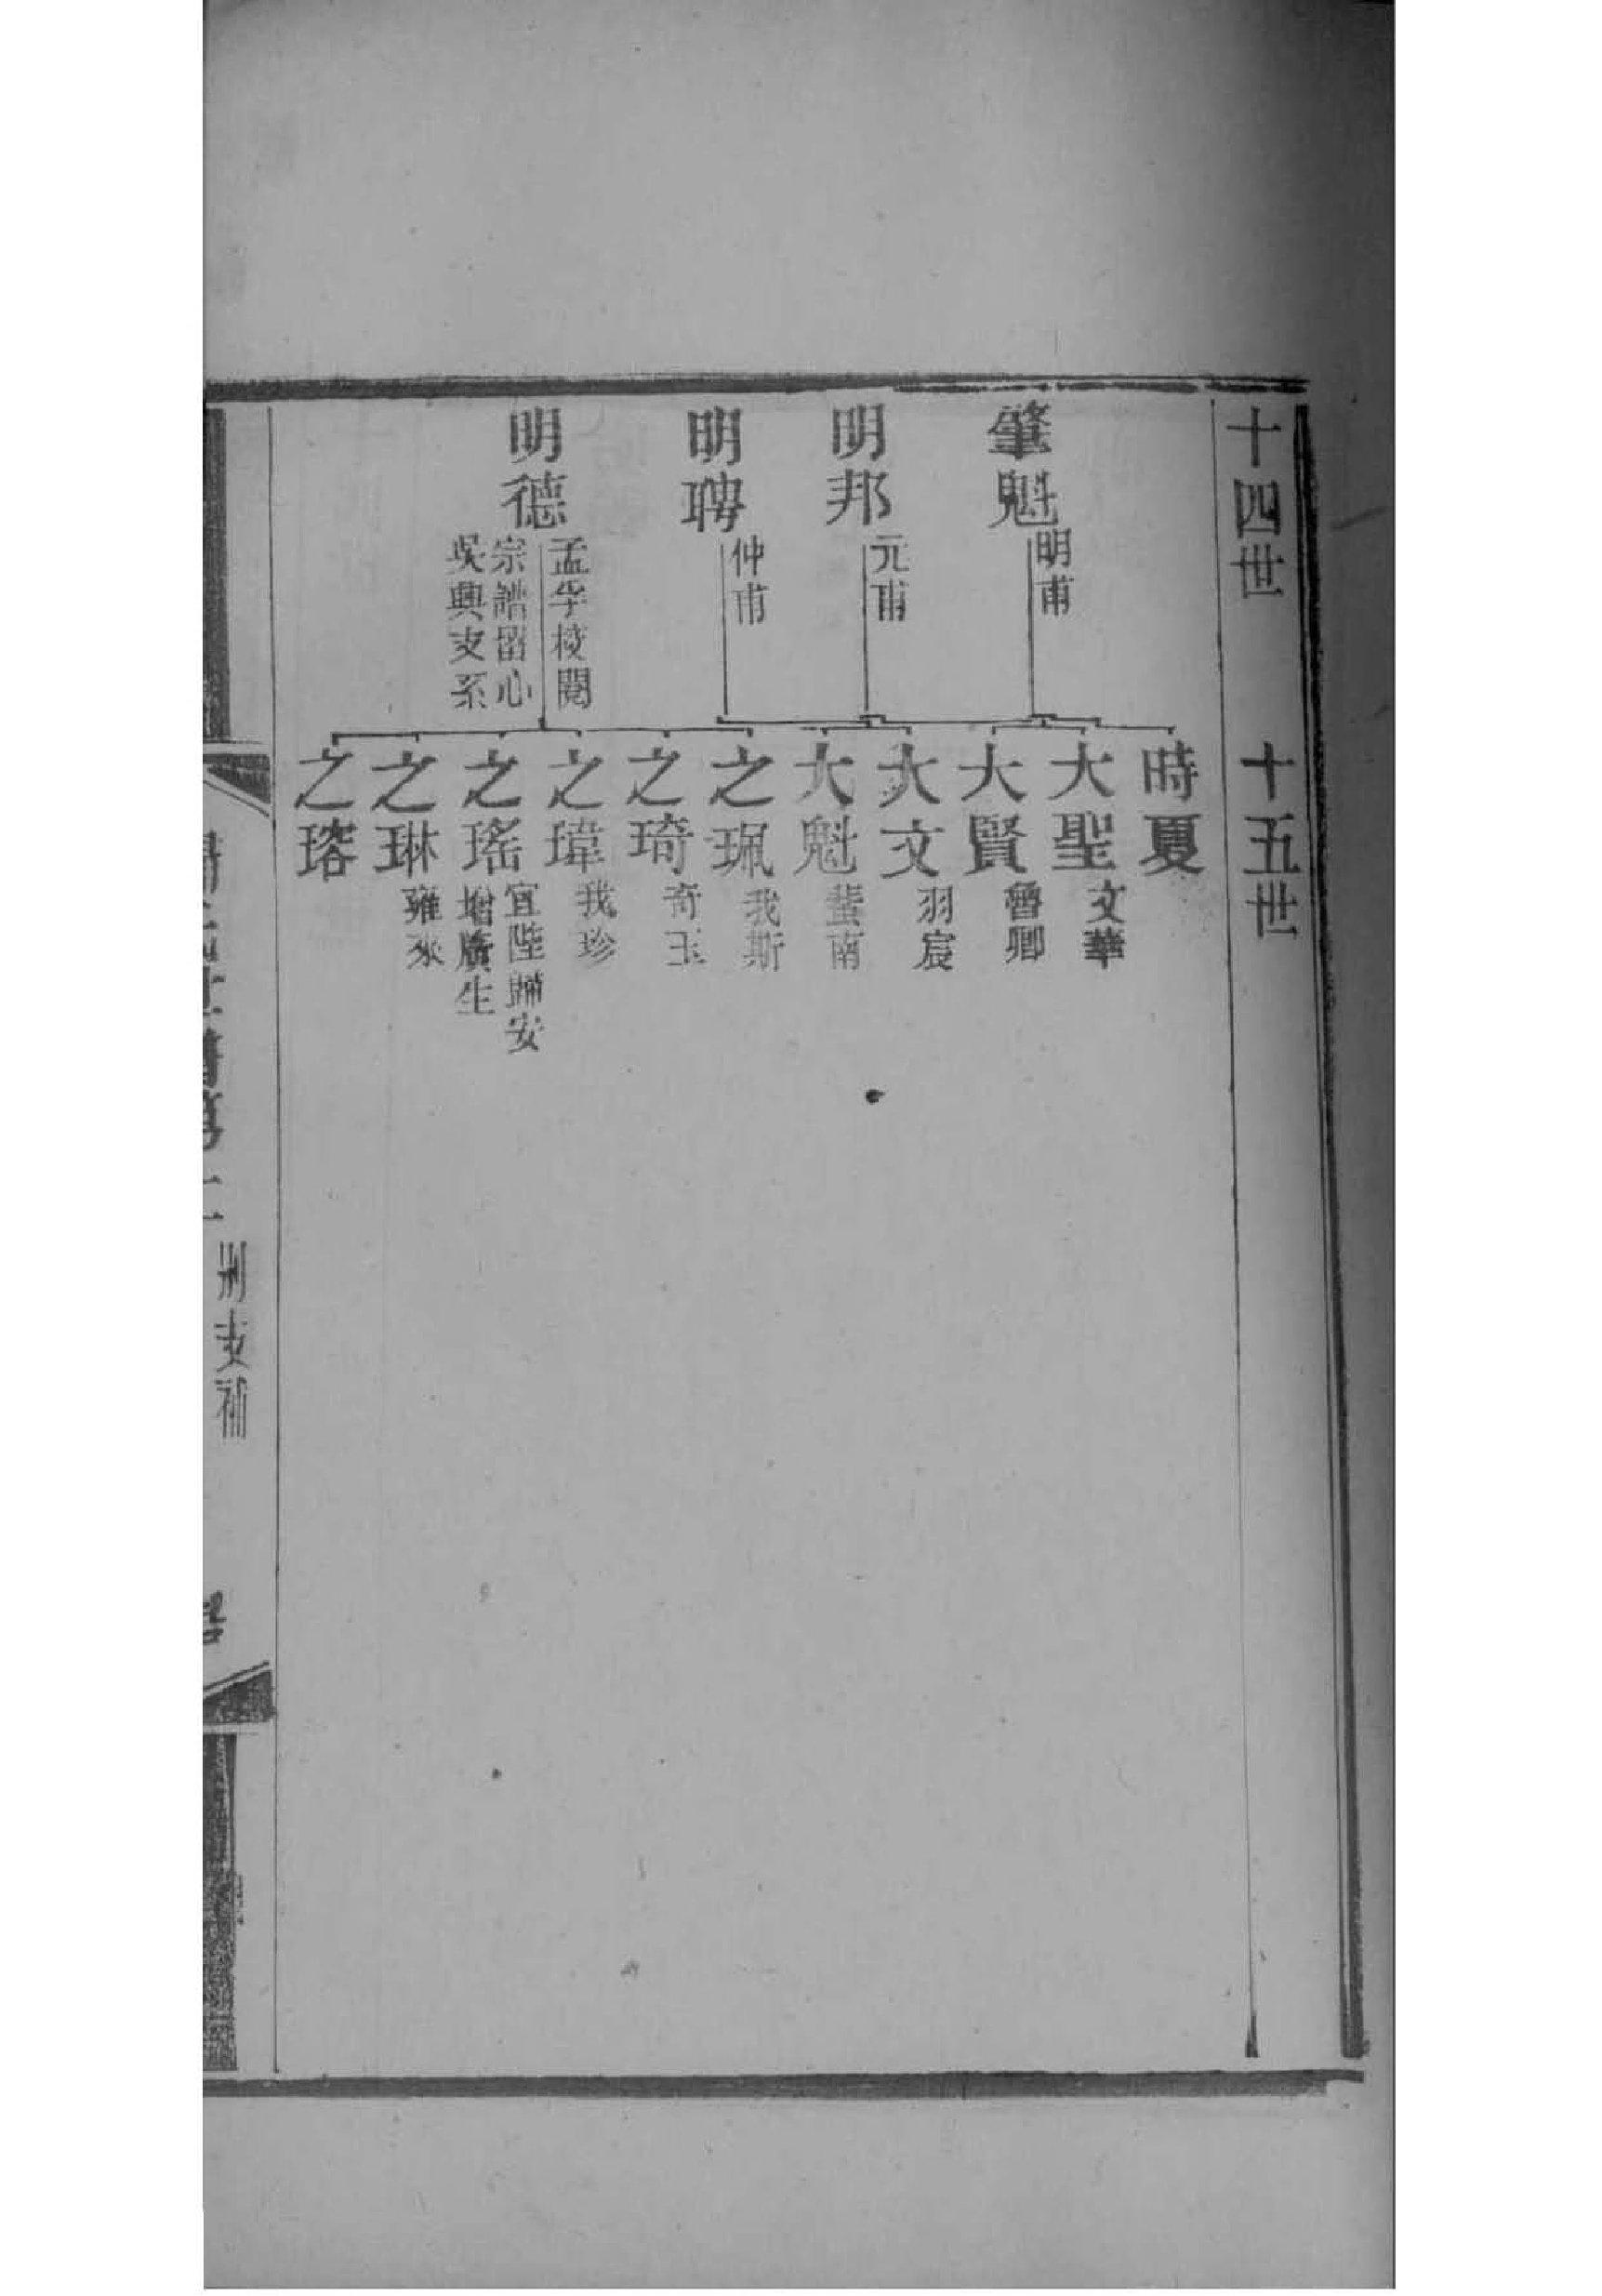 十四世
十五世
肇魁
明甫
明邦
元甫
明聘
仲甫
明德
孟华校閱
宗譜留心
吳興支系
時夏
大聖
文華
大賢
魯卿
大文
羽宸
大魁
蜚南
之珮
我斯
之琦
奇玉
之瑋
我珍
之瑤
宜陞歸安
增廣生
之琳
雍來
之瑢
別支補